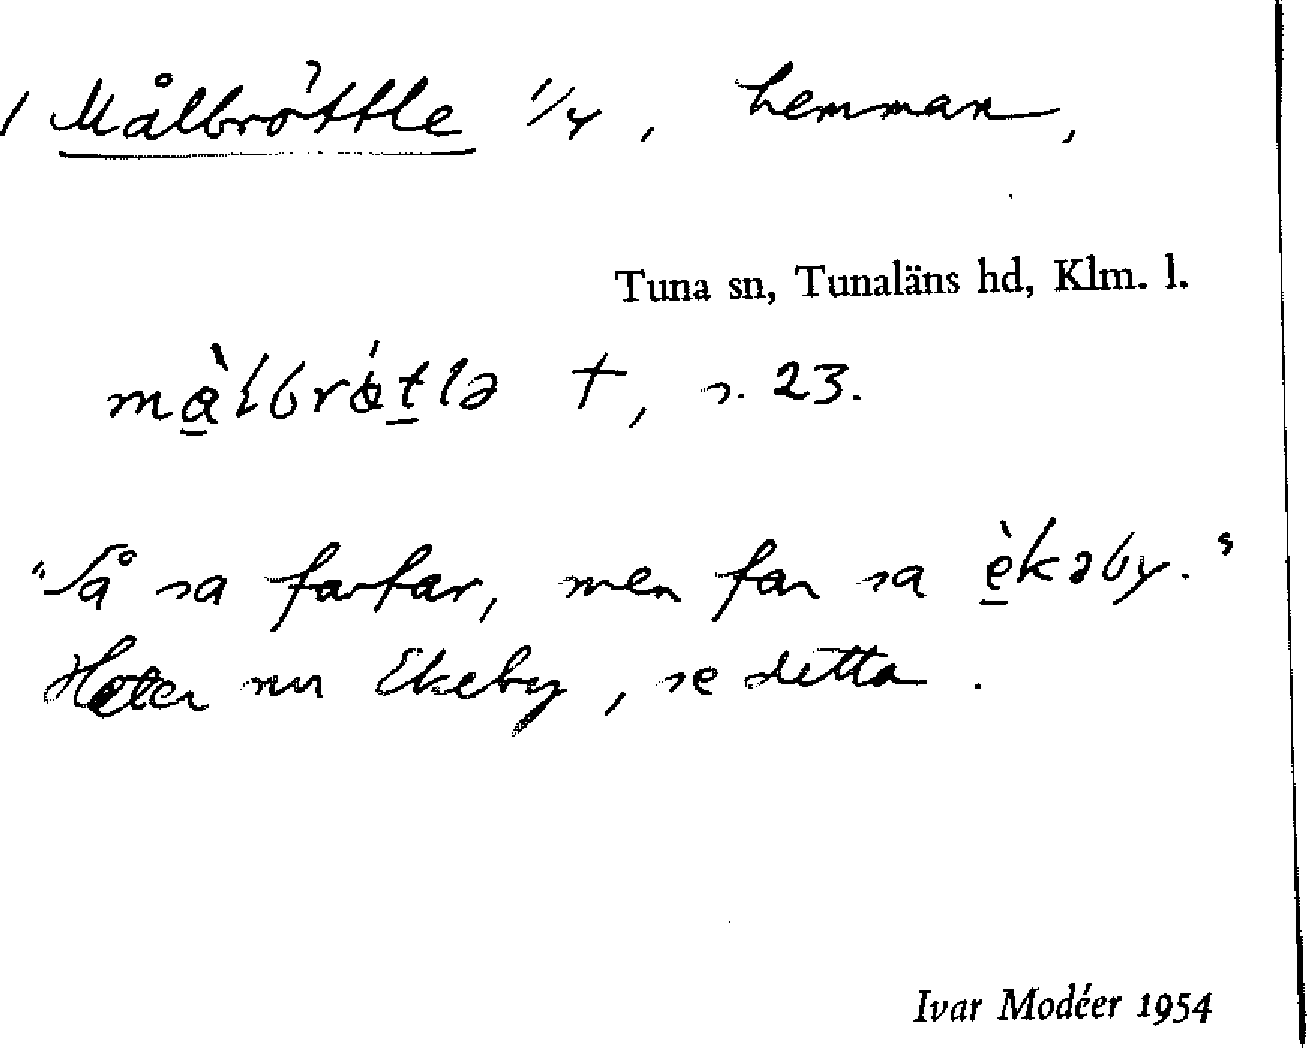 Målbröttle 1/4, hemman,
Tuna sn, Tunaläns hd, Klm. l.
†, s. 23.
"Så sa farfar, men far sa èkəby."
Heter nu Ekeby, se detta.
Ivar Modéer 1954